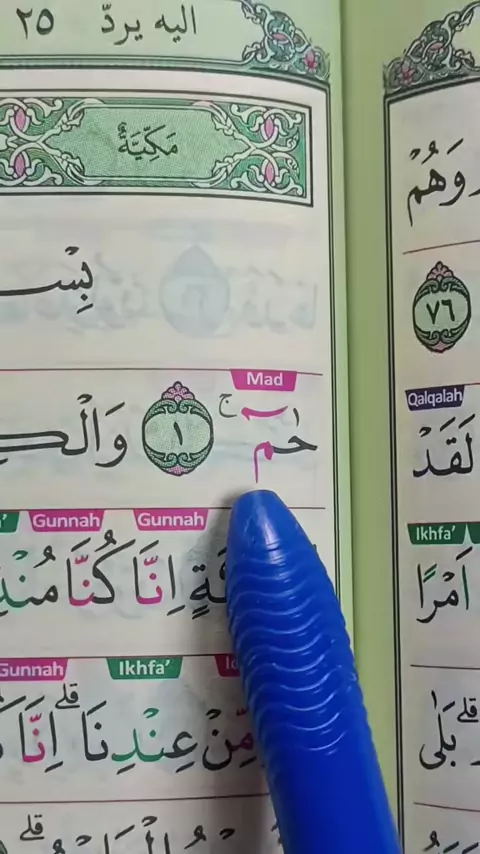 اليه يردّ ٢٥
مَكِّيَّةٌ
وَهُمْ
بِسْ
٧٦
Mad
Qalqalah
حٰمۤ ۚ ١ وَالْكِ
لَقَدْ
Gunnah Gunnah
Ikhfa'
اِنَّا كُنَّا مُنْذِ
اَمْرًا
Gunnah Ikhfa'
مِّنْ عِنْدِنَا ۗ اِنَّا
بَلٰى